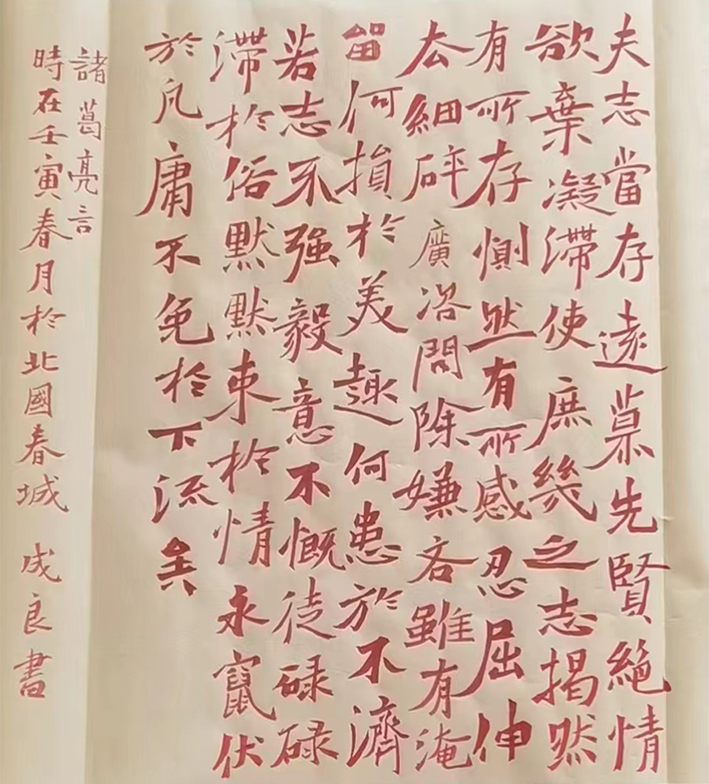 夫志當存遠慕先賢絶情
欲棄凝滯使庶幾之志揭然
有所存惻然有所感忍屈伸
去細碎廣咨問除嫌吝雖有淹
留何損於美趣何患於不濟
若志不强毅意不慨徒碌碌
滯於俗默默束於情永竄伏
於凡庸不免於下流矣
諸葛亮言
時在壬寅春月於北國春城 成良書